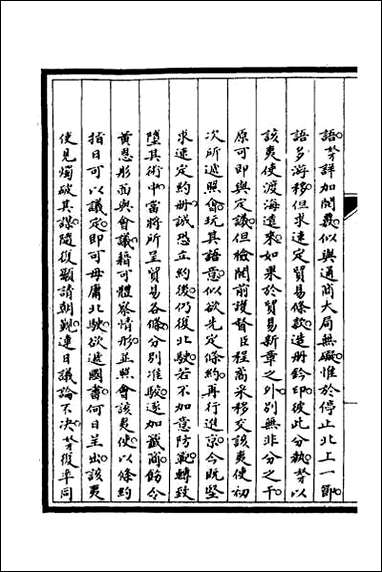 語奴才詳加開導似與通商大局無礙惟於停止北上一節
語多游移但求速定貿易條款造册鈐印彼此分執奴才以
該夷使渡海遠來如果於貿易新章之外別無非分之干
原可即與定議但檢閱前護督臣程矞采移交該夷使初
次所遞照會玩其語意似欲先定條約再行進京今既堅
求速定約册誠恐立約後仍復北駛若不加意防範轉致
墮其術中當將所呈貿易各條分別准駁逐加籤商飭令
黃恩彤面與會議藉可體察情形並照會該夷使以條約
指日可以議定即可毋庸北駛欲遞國書何日呈出該夷
使見燭破其謀隨復顯請朝覲連日議論不決奴才復率同